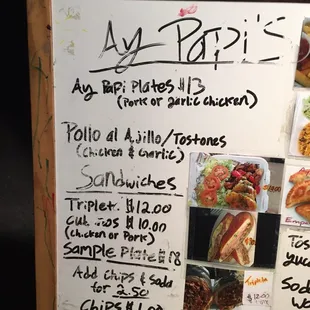 Ay Papi's
Ay Papi Plates $13
(Pork or garlic chicken)
Pollo al Ajillo/Tostones
(chicken & garlic)
Sandwiches
Triplet. $12.00
$10.00
(chicken or Pork)
Sample Plate $18
Add chips & Soda
for 2.50
Chips
Tripleta
Soda